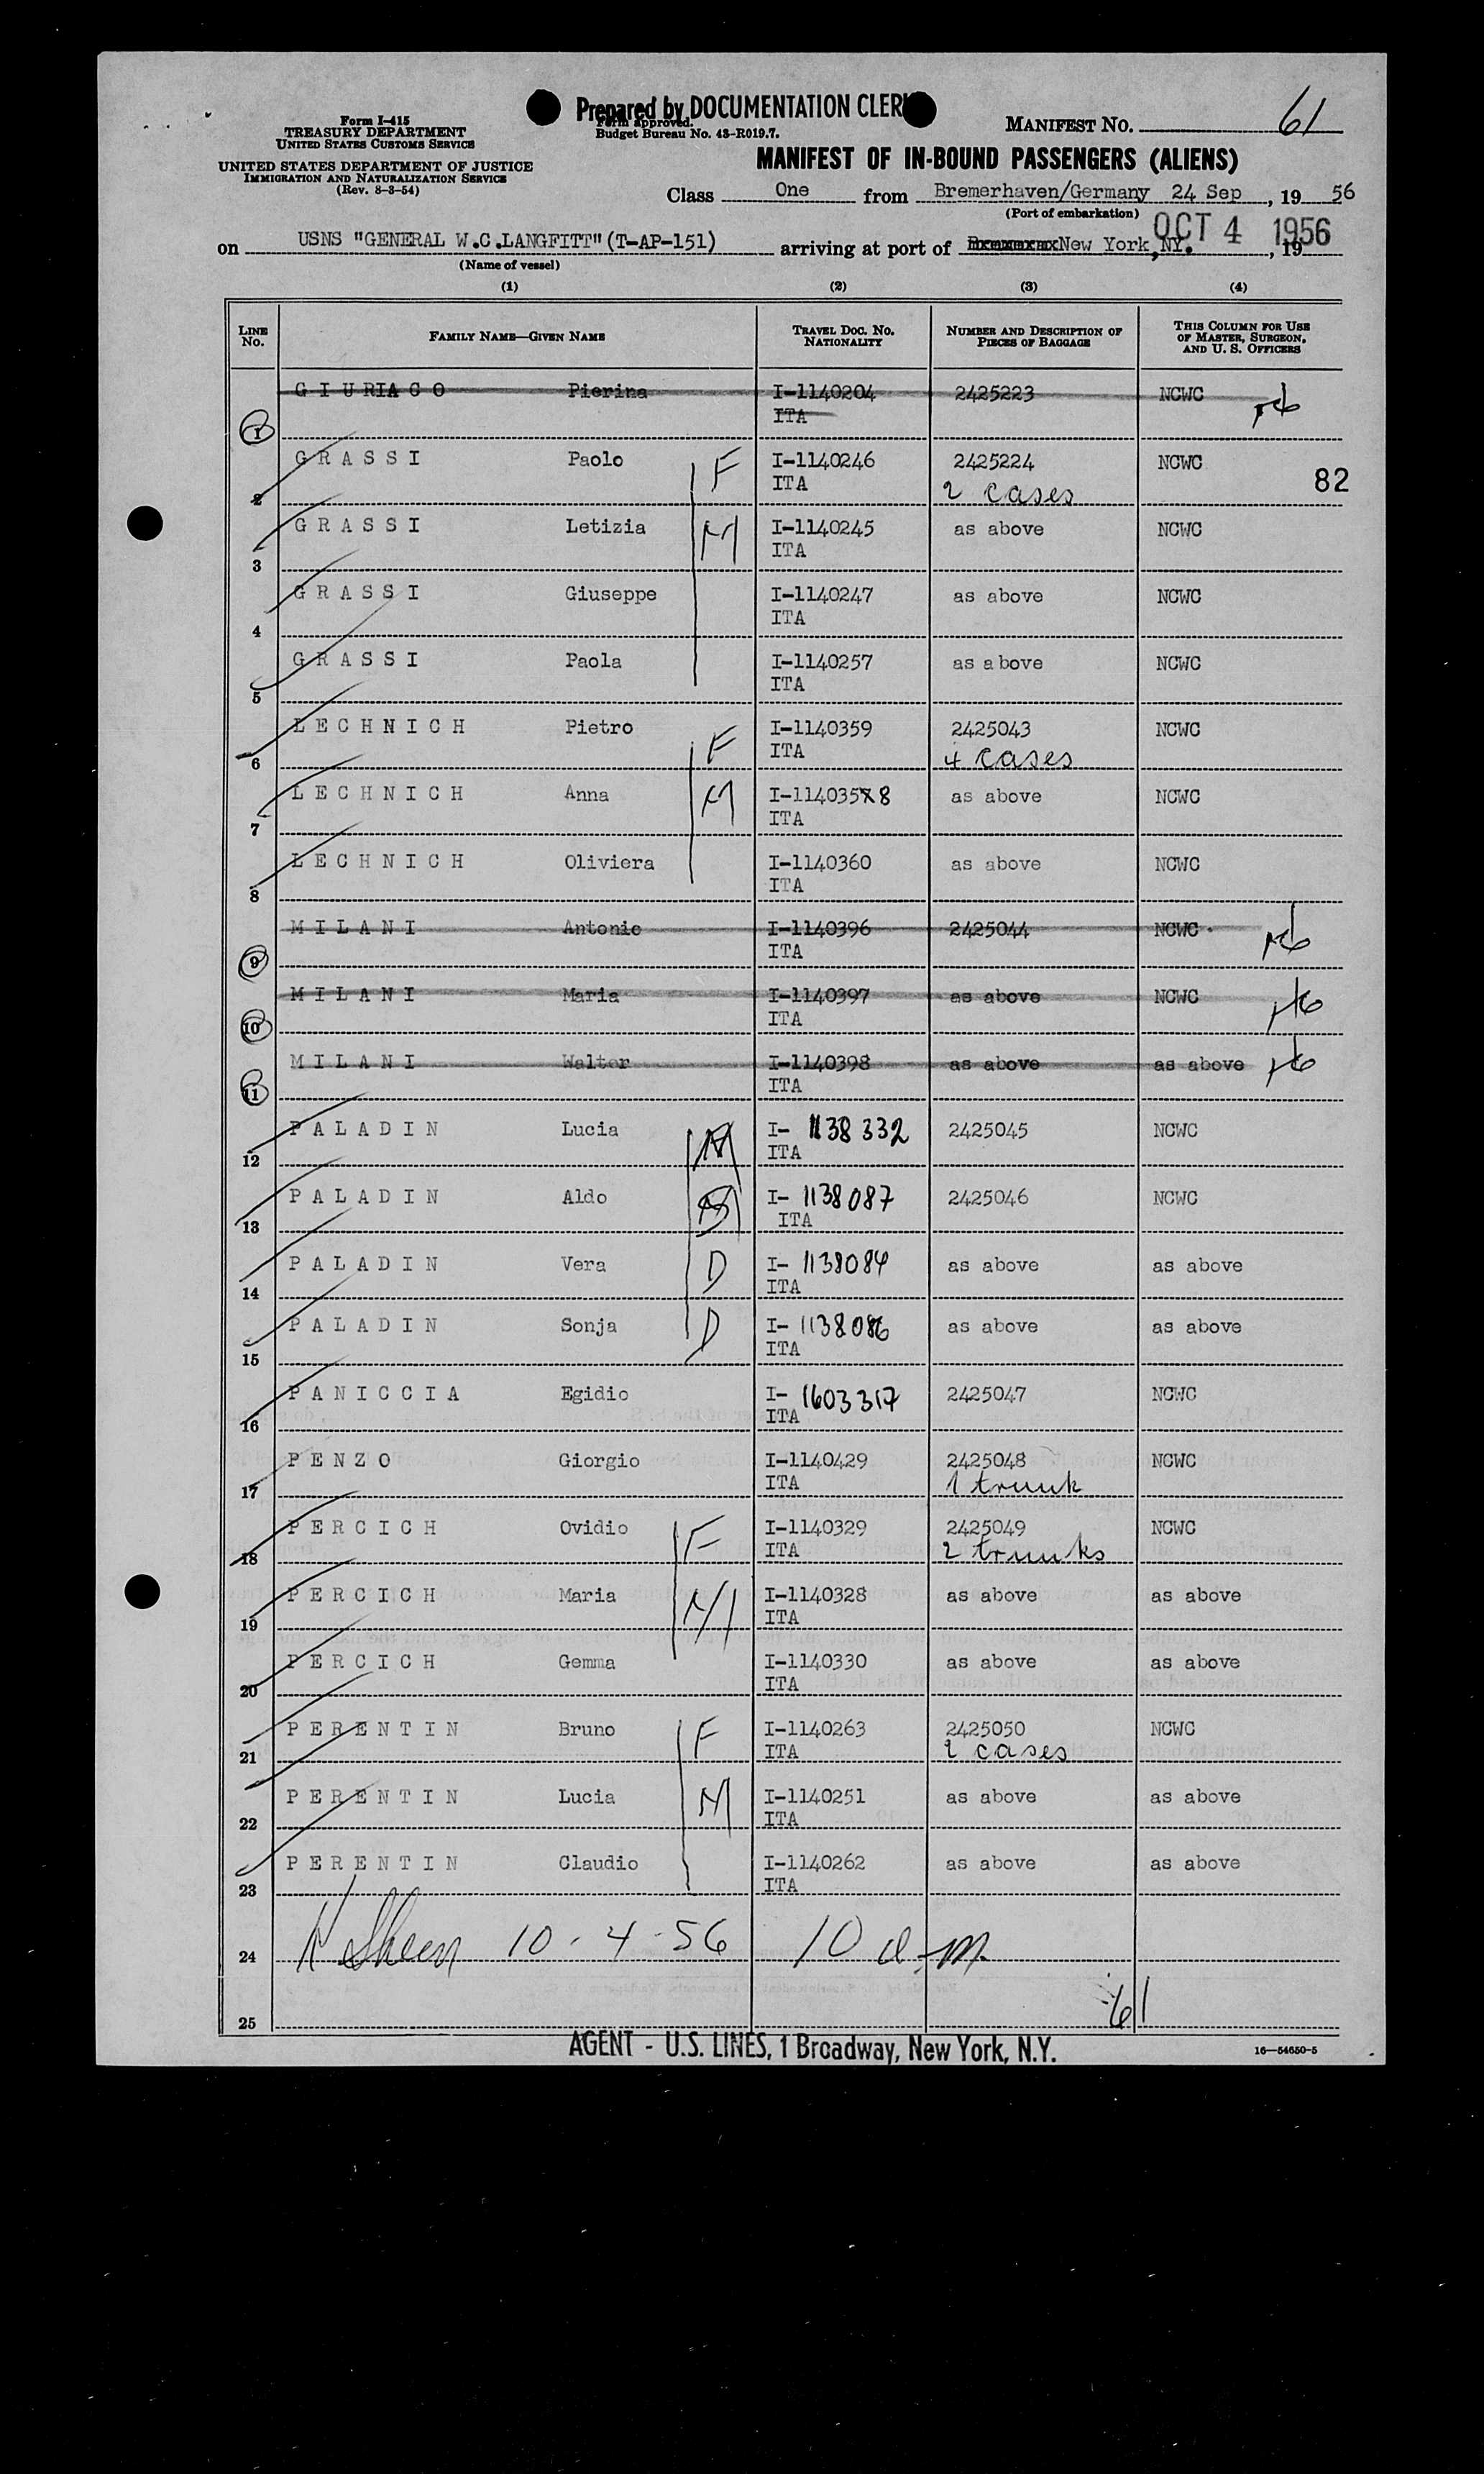 Prepared by DOCUMENTATION CLERK
Form approved.
Budget Bureau No. 43-R019.7.
Form I-415
TREASURY DEPARTMENT
UNITED STATES CUSTOMS SERVICE
UNITED STATES DEPARTMENT OF JUSTICE
IMMIGRATION AND NATURALIZATION SERVICE
(Rev. 8-3-54)
MANIFEST NO. 61
MANIFEST OF IN-BOUND PASSENGERS (ALIENS)
Class One from Bremerhaven/Germany 24 Sep, 19 56
(Port of embarkation)
on USNS "GENERAL W.C.LANGFITT"(T-AP-151) arriving at port of New York, NY. OCT 4 1956, 19
(Name of vessel)
(1) (2) (3) (4)
LINE NO. FAMILY NAME—GIVEN NAME TRAVEL DOC. NO. NATIONALITY NUMBER AND DESCRIPTION OF PIECES OF BAGGAGE THIS COLUMN FOR USE OF MASTER, SURGEON, AND U. S. OFFICERS
1 GIURIACO Pierina I-1140204 ITA 2425223 NCWC
2 GRASSI Paolo F I-1140246 ITA 2425224 2 cases NCWC 82
3 GRASSI Letizia M I-1140245 ITA as above NCWC
4 GRASSI Giuseppe I-1140247 ITA as above NCWC
5 GRASSI Paola I-1140257 ITA as above NCWC
6 LECHNICH Pietro F I-1140359 ITA 2425043 4 cases NCWC
7 LECHNICH Anna M I-114035x8 ITA as above NCWC
8 LECHNICH Oliviera I-1140360 ITA as above NCWC
9 MILANI Antonio I-1140396 ITA 2425044 NCWC
10 MILANI Maria I-1140397 ITA as above NCWC
11 MILANI Walter I-1140398 ITA as above as above
12 PALADIN Lucia I- 1138332 ITA 2425045 NCWC
13 PALADIN Aldo I- 1138087 ITA 2425046 NCWC
14 PALADIN Vera D I- 1138084 ITA as above as above
15 PALADIN Sonja D I- 1138086 ITA as above as above
16 PANICCIA Egidio I- 1603317 ITA 2425047 NCWC
17 PENZO Giorgio I-1140429 ITA 2425048 1 trunk NCWC
18 PERCICH Ovidio F I-1140329 ITA 2425049 2 trunks NCWC
19 PERCICH Maria M I-1140328 ITA as above as above
20 PERCICH Gemma I-1140330 ITA as above as above
21 PERENTIN Bruno F I-1140263 ITA 2425050 2 cases NCWC
22 PERENTIN Lucia M I-1140251 ITA as above as above
23 PERENTIN Claudio I-1140262 ITA as above as above
24 10-4-56 10 a.m.
25 61
AGENT - U.S. LINES, 1 Broadway, New York, N.Y.
16—54650-5